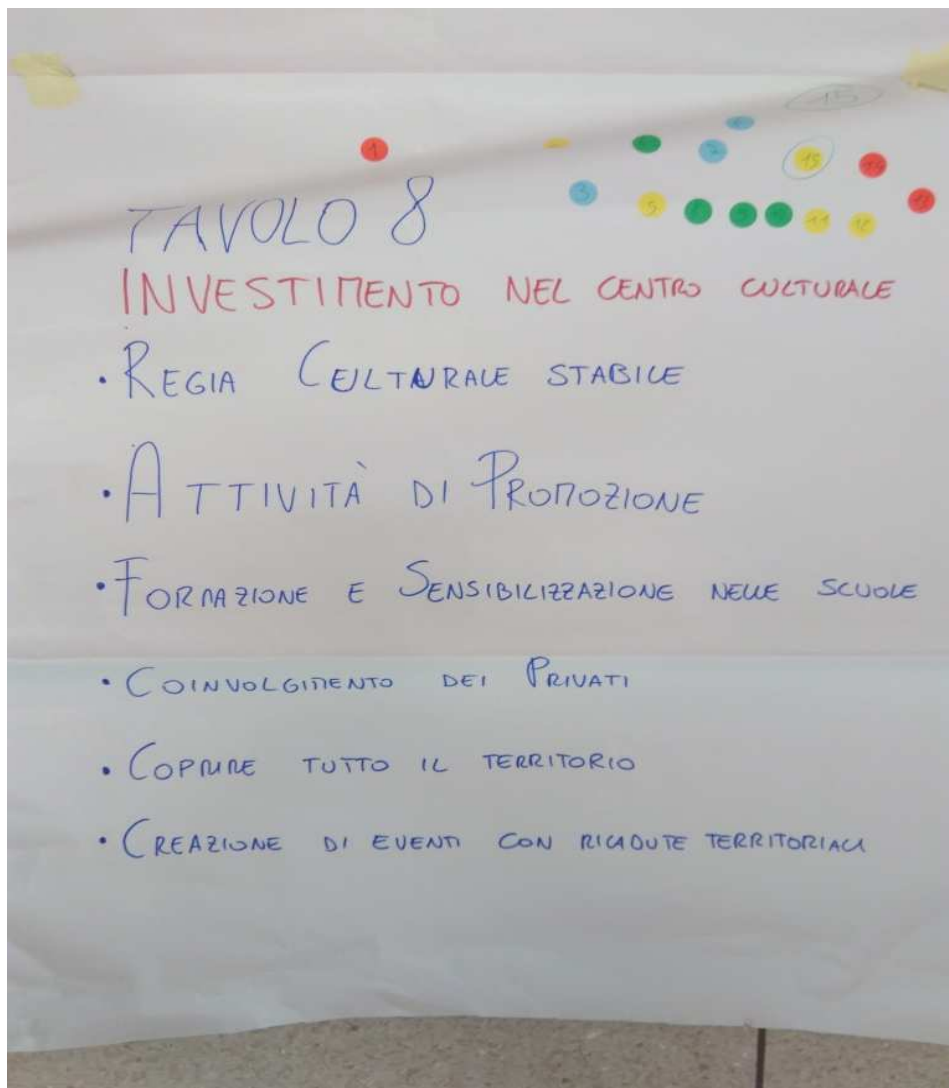 15
1
7
15
14
3
5
9
11
12
13
TAVOLO 8
INVESTIMENTO NEL CENTRO CULTURALE
• REGIA CULTURALE STABILE
• ATTIVITÀ DI PROMOZIONE
• FORMAZIONE E SENSIBILIZZAZIONE NELLE SCUOLE
• COINVOLGIMENTO DEI PRIVATI
• COPRIRE TUTTO IL TERRITORIO
• CREAZIONE DI EVENTI CON RICADUTE TERRITORIALI